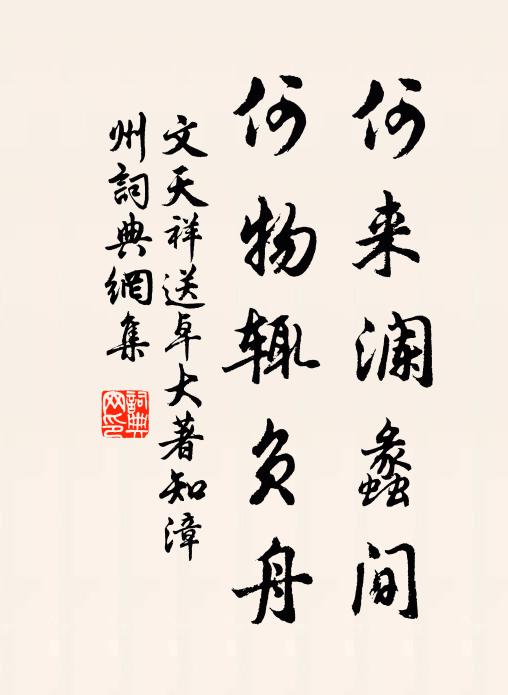 何来澜蠡间
何物辄负舟
文天祥送卓大著知漳
州詞典網集
詞典
网印